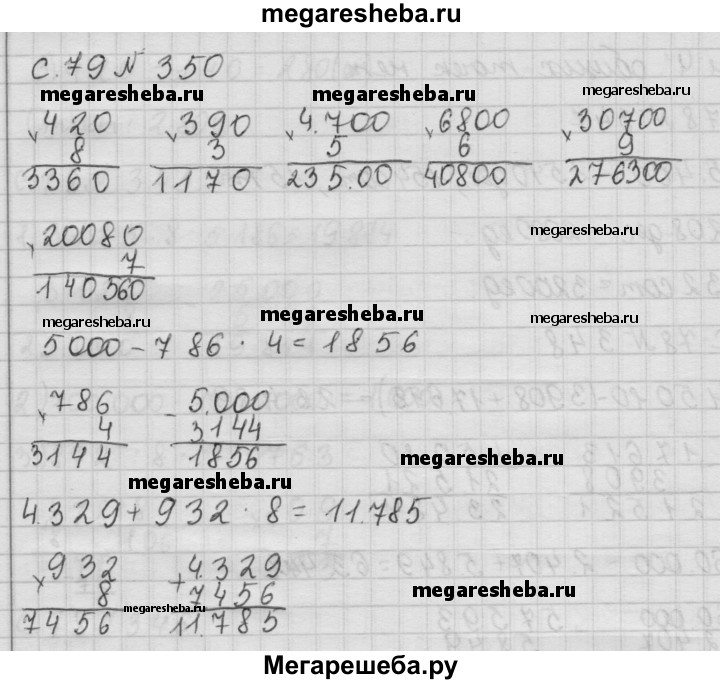 megaresheba.ru
с. 79 № 350
megaresheba.ru megaresheba.ru megaresheba.ru
×420 ×390 ×4.700 ×6800 ×30700
8 3 5 6 9
3360 1170 235.00 40800 276300
×20080
7
140560
megaresheba.ru megaresheba.ru megaresheba.ru megaresheba.ru
5000 - 786 · 4 = 1856
×786 - 5.000
4 3144
3144 1856
megaresheba.ru megaresheba.ru
4.329 + 932 · 8 = 11.785
×932 + 4.329
8 7456
7456 11.785
megaresheba.ru megaresheba.ru
Мегарешеба.ру